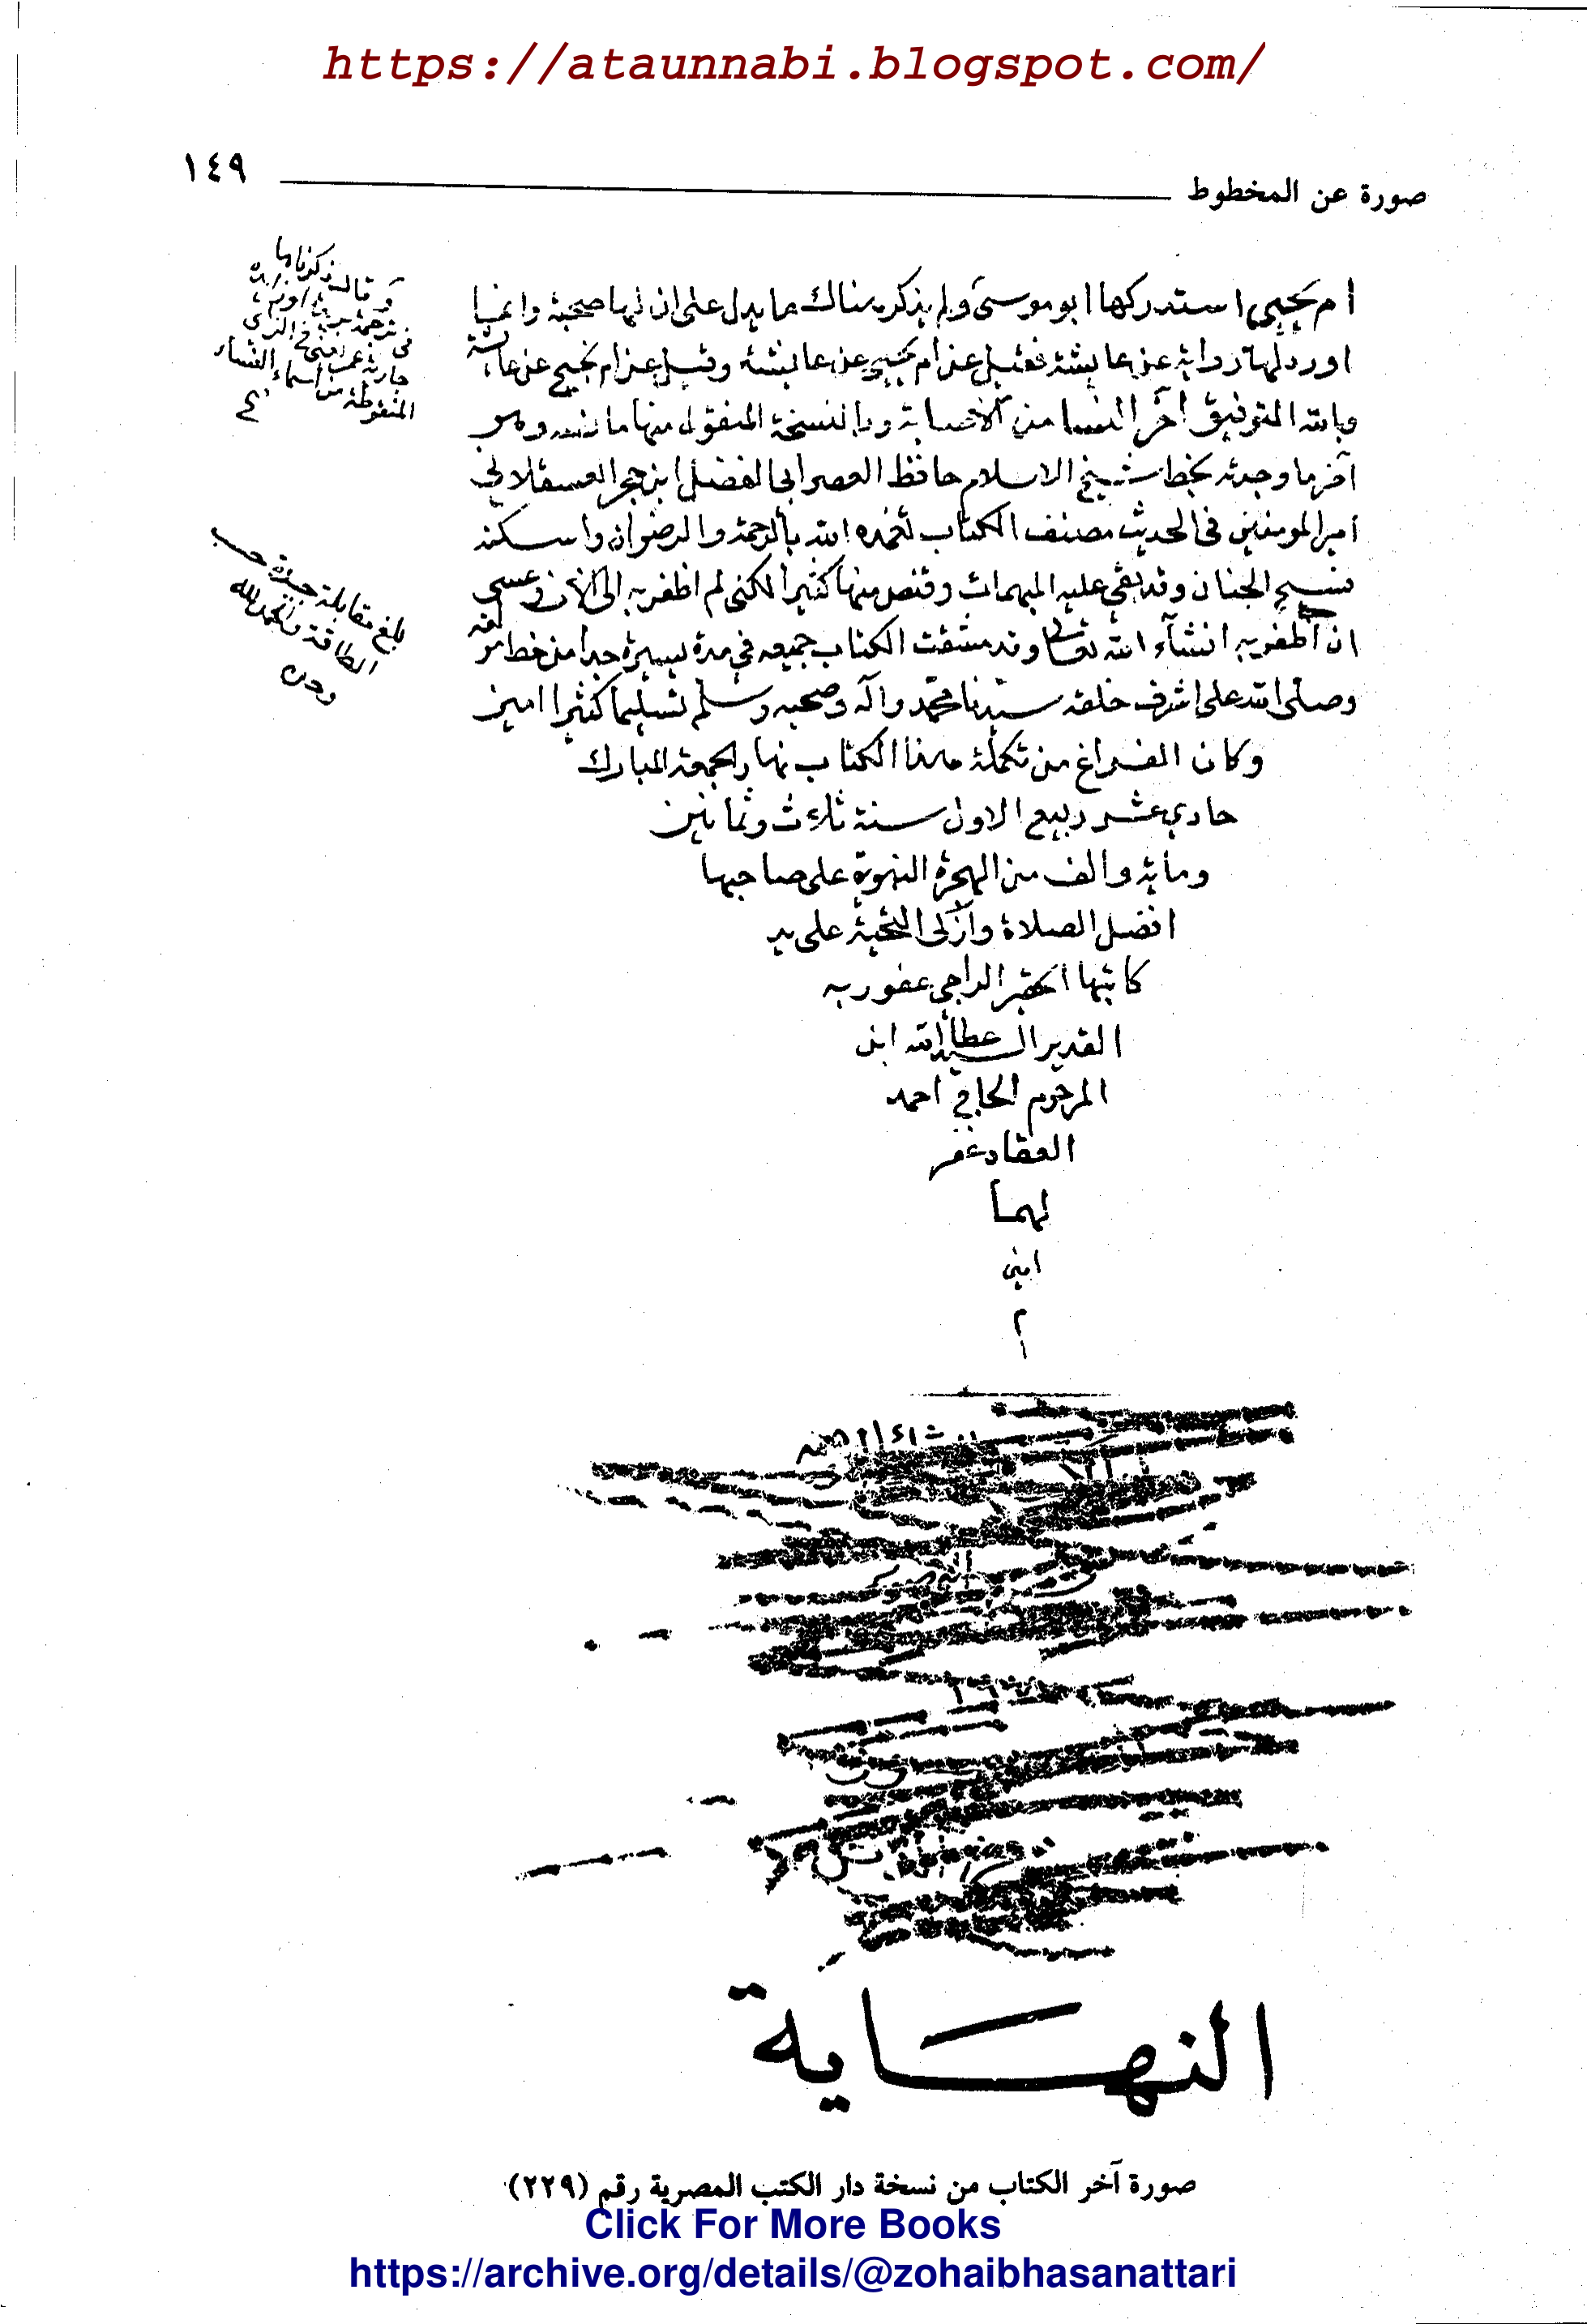 https://ataunnabi.blogspot.com/
صورة عن المخطوط ١٤٩
ام يحيى استدركها ابو موسى ولم يذكر هناك ما يدل على ان لها صحبة وانما
اورد لها رواية عن عايشة فقيل عن ام يحيى عن عايشة وقيل عن ام نجيح عن عايشة
وبالله التوفيق آخر النسا من الاصابة وبالنسخة المنقول منها ما نصه وهو
آخر ما وجدته بخط شيخ الاسلام حافظ العصر ابي الفضل ابن حجر العسقلاني
امير المومنين في الحديث مصنف الكتاب تغمده الله بالرحمة والرضوان واسكنه
فسيح الجنان وقد بقي عليه المبهمات وقنص منها كثيرا لكني لم اظفر به الى الآن وعسى
ان اظفر به انشآء الله تعالى وقد مشقت الكتاب جميعه في مدة يسيرة جدا من خط مولفه
وصلى الله على اشرف خلقه سيدنا محمد وآله وصحبه وسلم تسليما كثيرا امين
وكان الفراغ من تكملة هذا الكتاب نهار الجمعة المبارك
حادي عشر ربيع الاول سنة ثلاث وثمانين
وماية والف من الهجرة النبوية على صاحبها
افضل الصلاة وازكى التحية على يد
كاتبها احقر الراجي عفو ربه
القدير السيد عطا الله ابن
المرحوم الحاج احمد
العقاد غفر
لهما
امين
م
وقال ذكرناها
في ترجمة
المنقوطة من اسماء النساء
بلغ مقابلة جيدة حسب
الطاقة والحمد لله
وحده
النهاية
صورة آخر الكتاب من نسخة دار الكتب المصرية رقم (٢٢٩)
Click For More Books
https://archive.org/details/@zohaibhasanattari